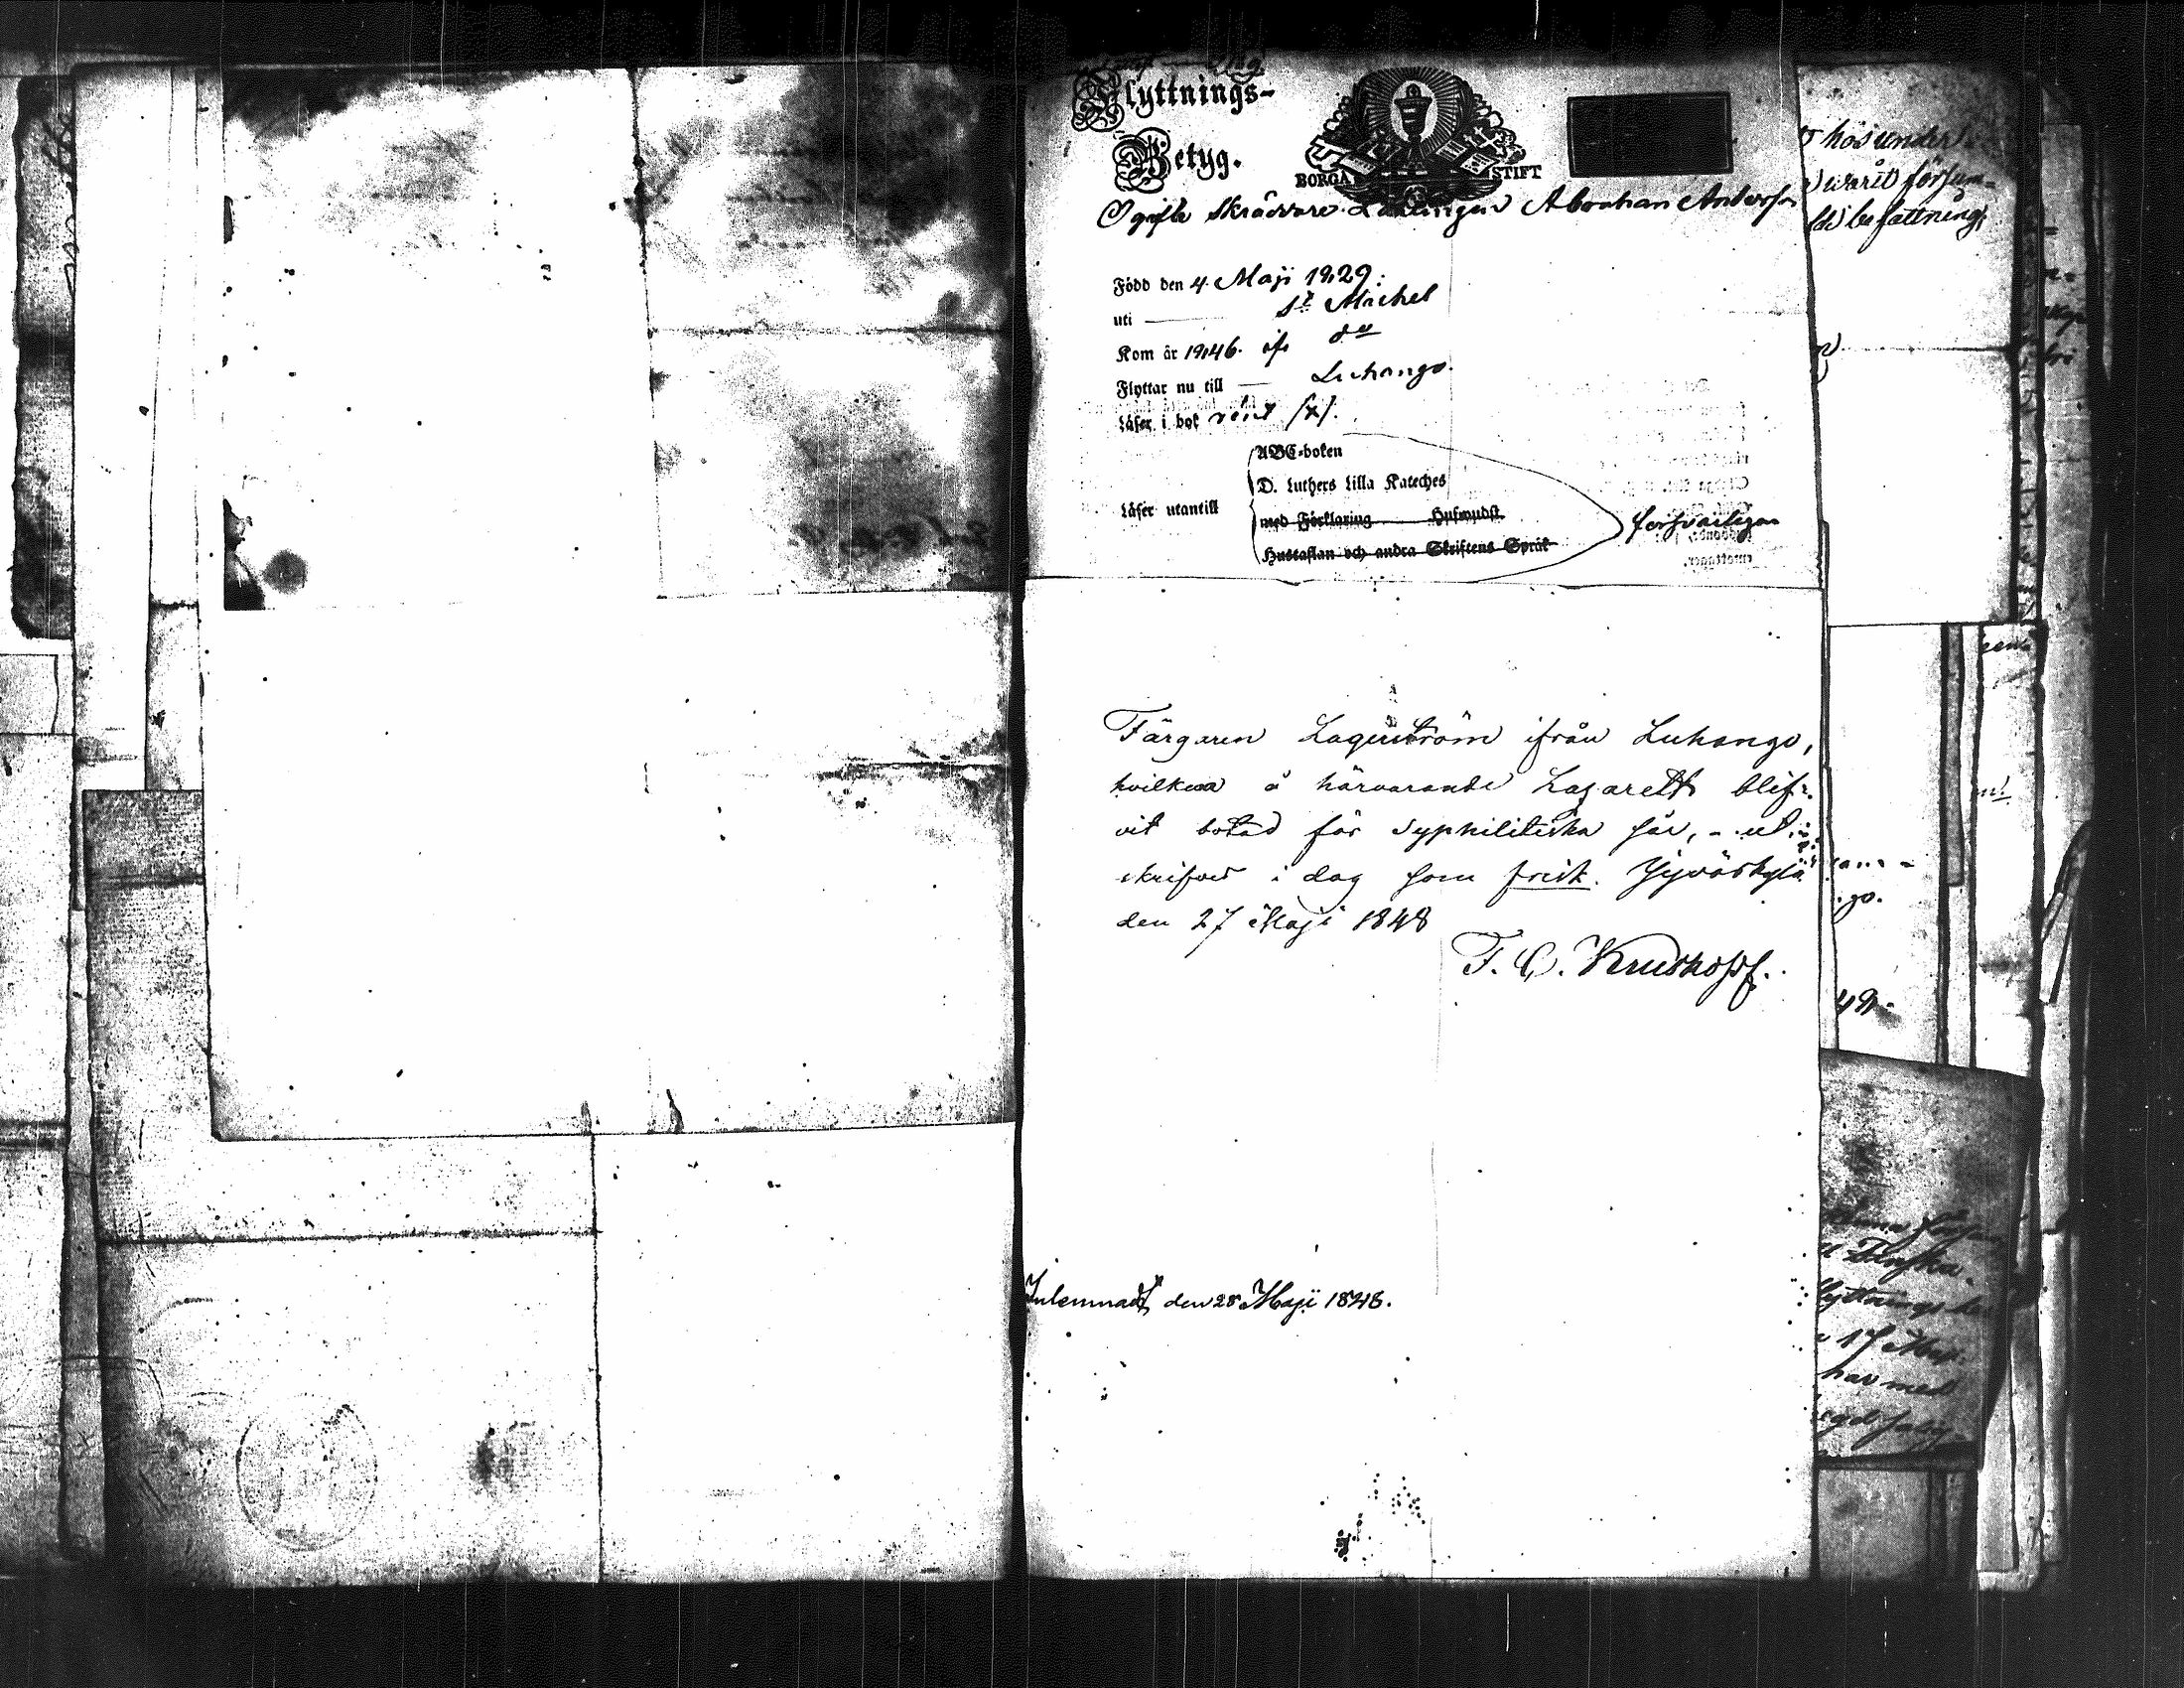 Flyttnings-
Betyg.
BORGÅ STIFT
Ogifte Skräddare Lärlingen Abraham Andersson
Född den 4. Maji 1829:
uti St Michel
Kom år 1846. ifr do
Flyttar nu till Luhango.
Läser i bok rent (x).
Läser utantill
ABC-boken
D. Luthers Lilla Kateches
med Förklaring Hufwudst.
Hustaflan och andra Skriftens Språk
försvarligen
Färgaren Lagerström ifrån Luhango,
hvilken å härvarande Lazarett blif-
vit botad för syphilitiska sår, - ut-
skrifves i dag som frisk. Jyväskylä
den 27 Maji 1848
F. C. Kruskopf.
Inlemnadt den 28 Maji 1848.
hos under
warit försum-
befattning
49.
Finska
Flyttnings be
17 Maji
har med